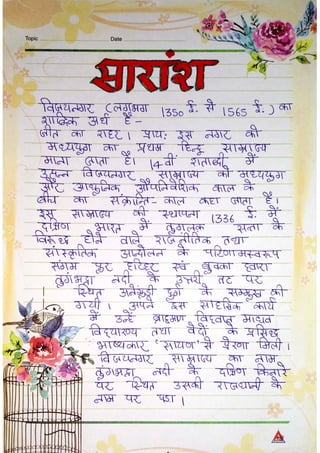 Topic Date
सारांश
विजयनगर (लगभग 1350 ई. से 1565 ई.) का
शाब्दिक अर्थ है -
जीत का शहर। प्रायः इस नगर को
मध्ययुग का प्रथम हिन्दू साम्राज्य
माना जाता है। 14वीं शताब्दी में
उत्पन्न विजयनगर साम्राज्य को मध्ययुग
और आधुनिक औपनिवेशिक काल के
बीच का संक्रान्ति-काल कहा जाता है।
इस साम्राज्य की स्थापना 1336 ई. में
दक्षिण भारत में तुगलक सत्ता के
विरुद्ध होने वाले राजनीतिक तथा
सांस्कृतिक आन्दोलन के परिणामस्वरूप
संगम पुत्र हरिहर एवं बुक्का द्वारा
तुंगभद्रा नदी के उत्तरी तट पर
स्थित अनेगुंडी दुर्ग के सम्मुख की
गयी। अपने इस साहसिक कार्य
में उन्हें ब्राह्मण विद्वान माधव
विद्यारण्य तथा वेदों के प्रसिद्ध
भाष्यकार 'सायण' से प्रेरणा मिली।
विजयनगर साम्राज्य का नाम
तुंगभद्रा नदी के दक्षिण किनारे
पर स्थित उसकी राजधानी के
नाम पर पड़ा।